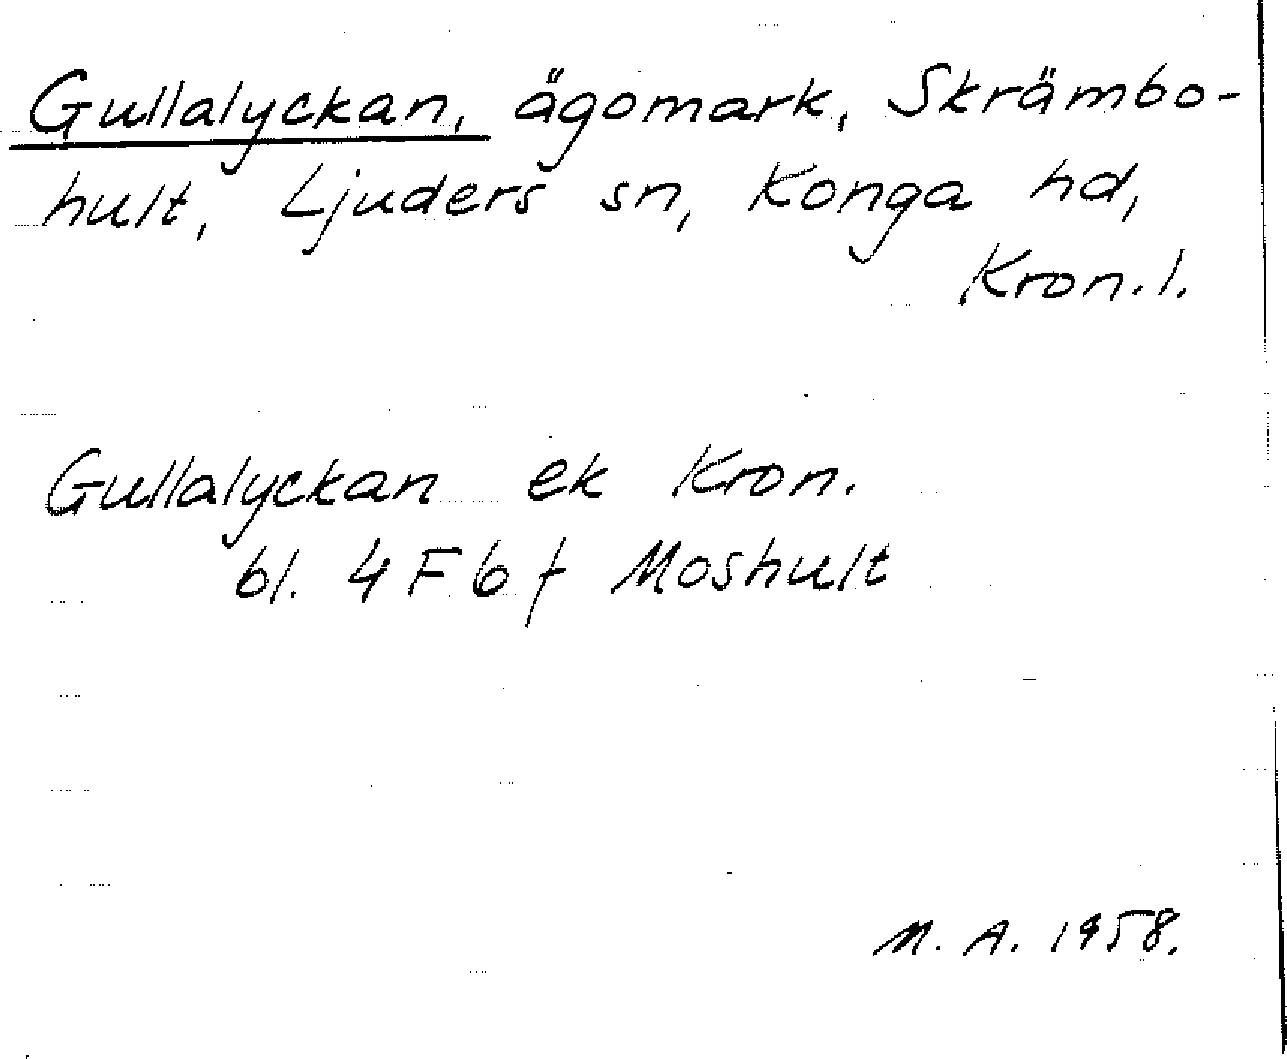 Gullalyckan, ägomark, Skrämbo-
hult, Ljuders sn, Konga hd,
Kron. l.
Gullalyckan ek Kron.
bl. 4 F 6 f Moshult
M. A. 1958.